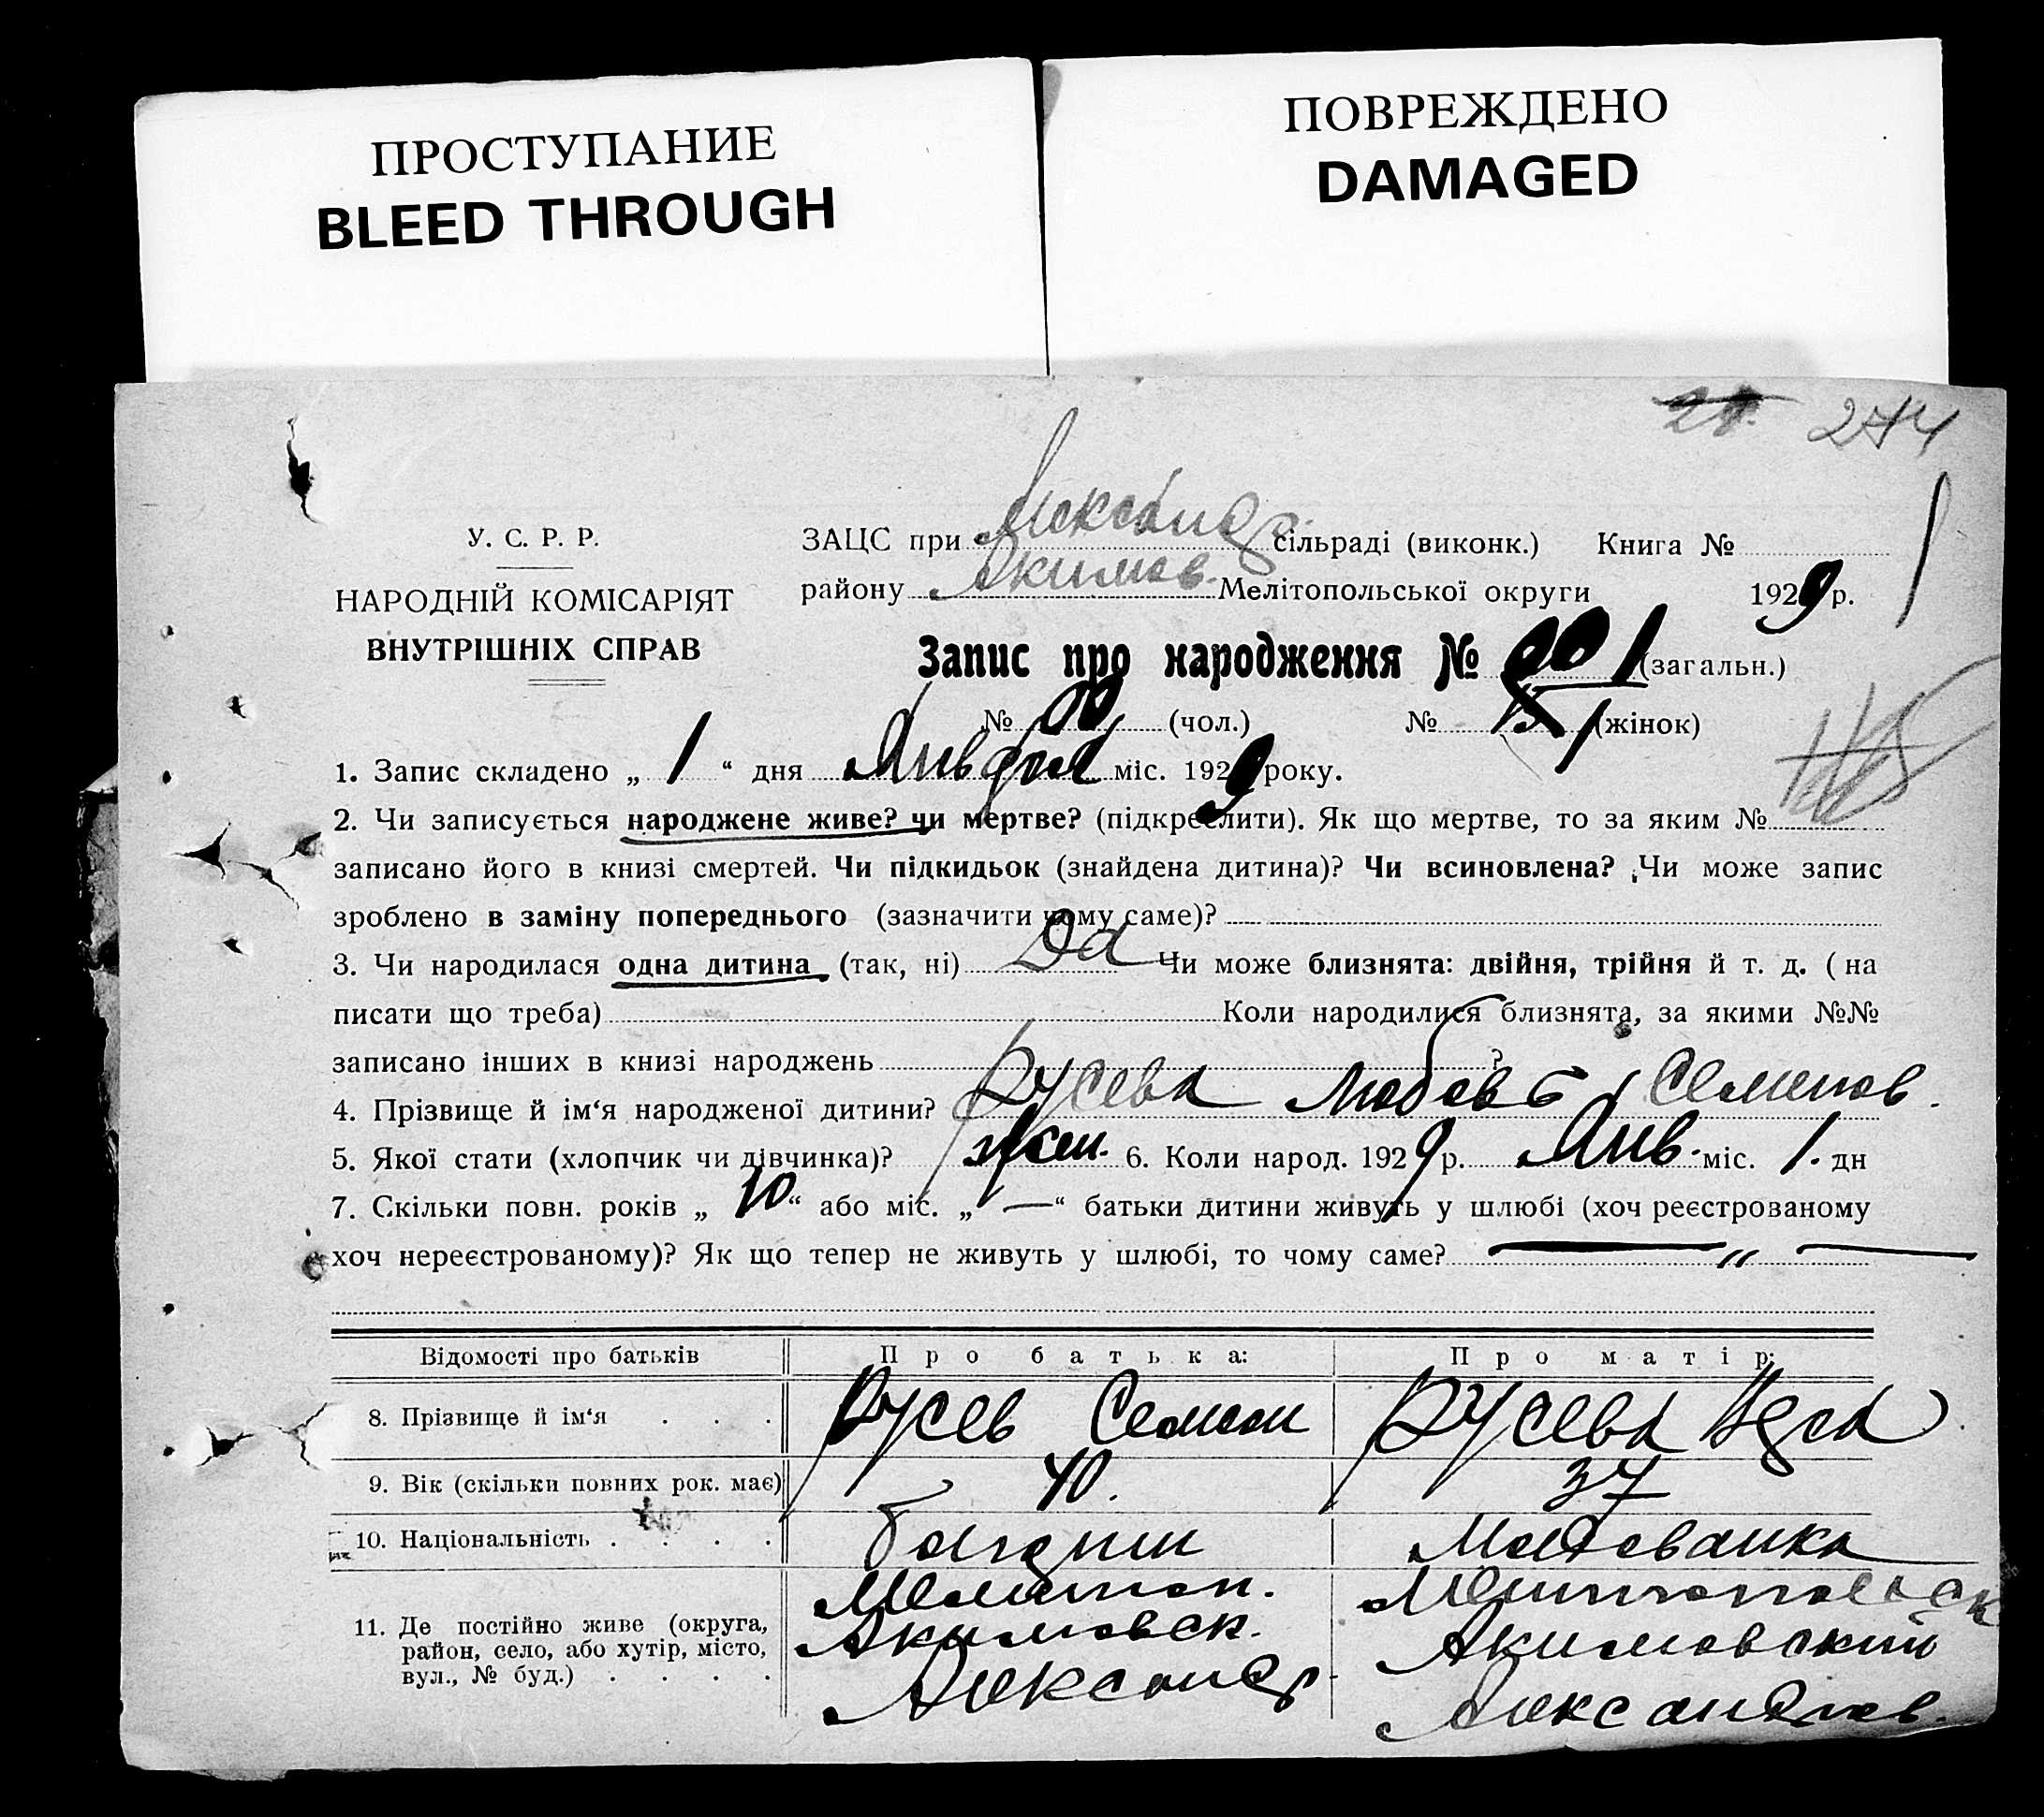 ПРОСТУПАНИЕ
BLEED THROUGH
ПОВРЕЖДЕНО
DAMAGED
274
У. С. Р. Р.
НАРОДНІЙ КОМІСАРІЯТ
ВНУТРІШНІХ СПРАВ
ЗАЦС при Александ сільраді (виконк.) Книга №
району Акимов. Мелітопольської округи 1929 р.
Запис про народження № 1 (загальн.)
№ (чол.) № 1 (жінок)
1. Запис складено „ 1 “ дня Января міс. 1929 року.
2. Чи записується народжене живе? чи мертве? (підкреслити). Як що мертве, то за яким №
записано його в книзі смертей. Чи підкидьок (знайдена дитина)? Чи всиновлена? Чи може запис
зроблено в заміну попереднього (зазначити чому саме)?
3. Чи народилася одна дитина (так, ні) Да Чи може близнята: двійня, трійня й т. д. (на
писати що треба) Коли народилися близнята, за якими №№
записано інших в книзі народжень ?
4. Прізвище й ім‘я народженої дитини? Русева Любовь Семенов.
5. Якої стати (хлопчик чи дівчинка)? жен. 6. Коли народ. 1929 р. Янв. міс. 1. дн
7. Скільки повн. років „ 10 “ або міс. „ — “ батьки дитини живуть у шлюбі (хоч реєстрованому
хоч нереєстрованому)? Як що тепер не живуть у шлюбі, то чому саме? — „ —
Відомості про батьків Про батька: Про матір:
8. Прізвище й ім‘я . . . Русев Семен Русева
9. Вік (скільки повних рок. має) 40. 37
10. Національність . . . . болгрин Молдованка
11. Де постійно живе (округа,
район, село, або хутір, місто,
вул., № буд.) . . . .
Мелитоп.
Акимовск.
Александр
Мелитопольск
Акимовский
Александров.